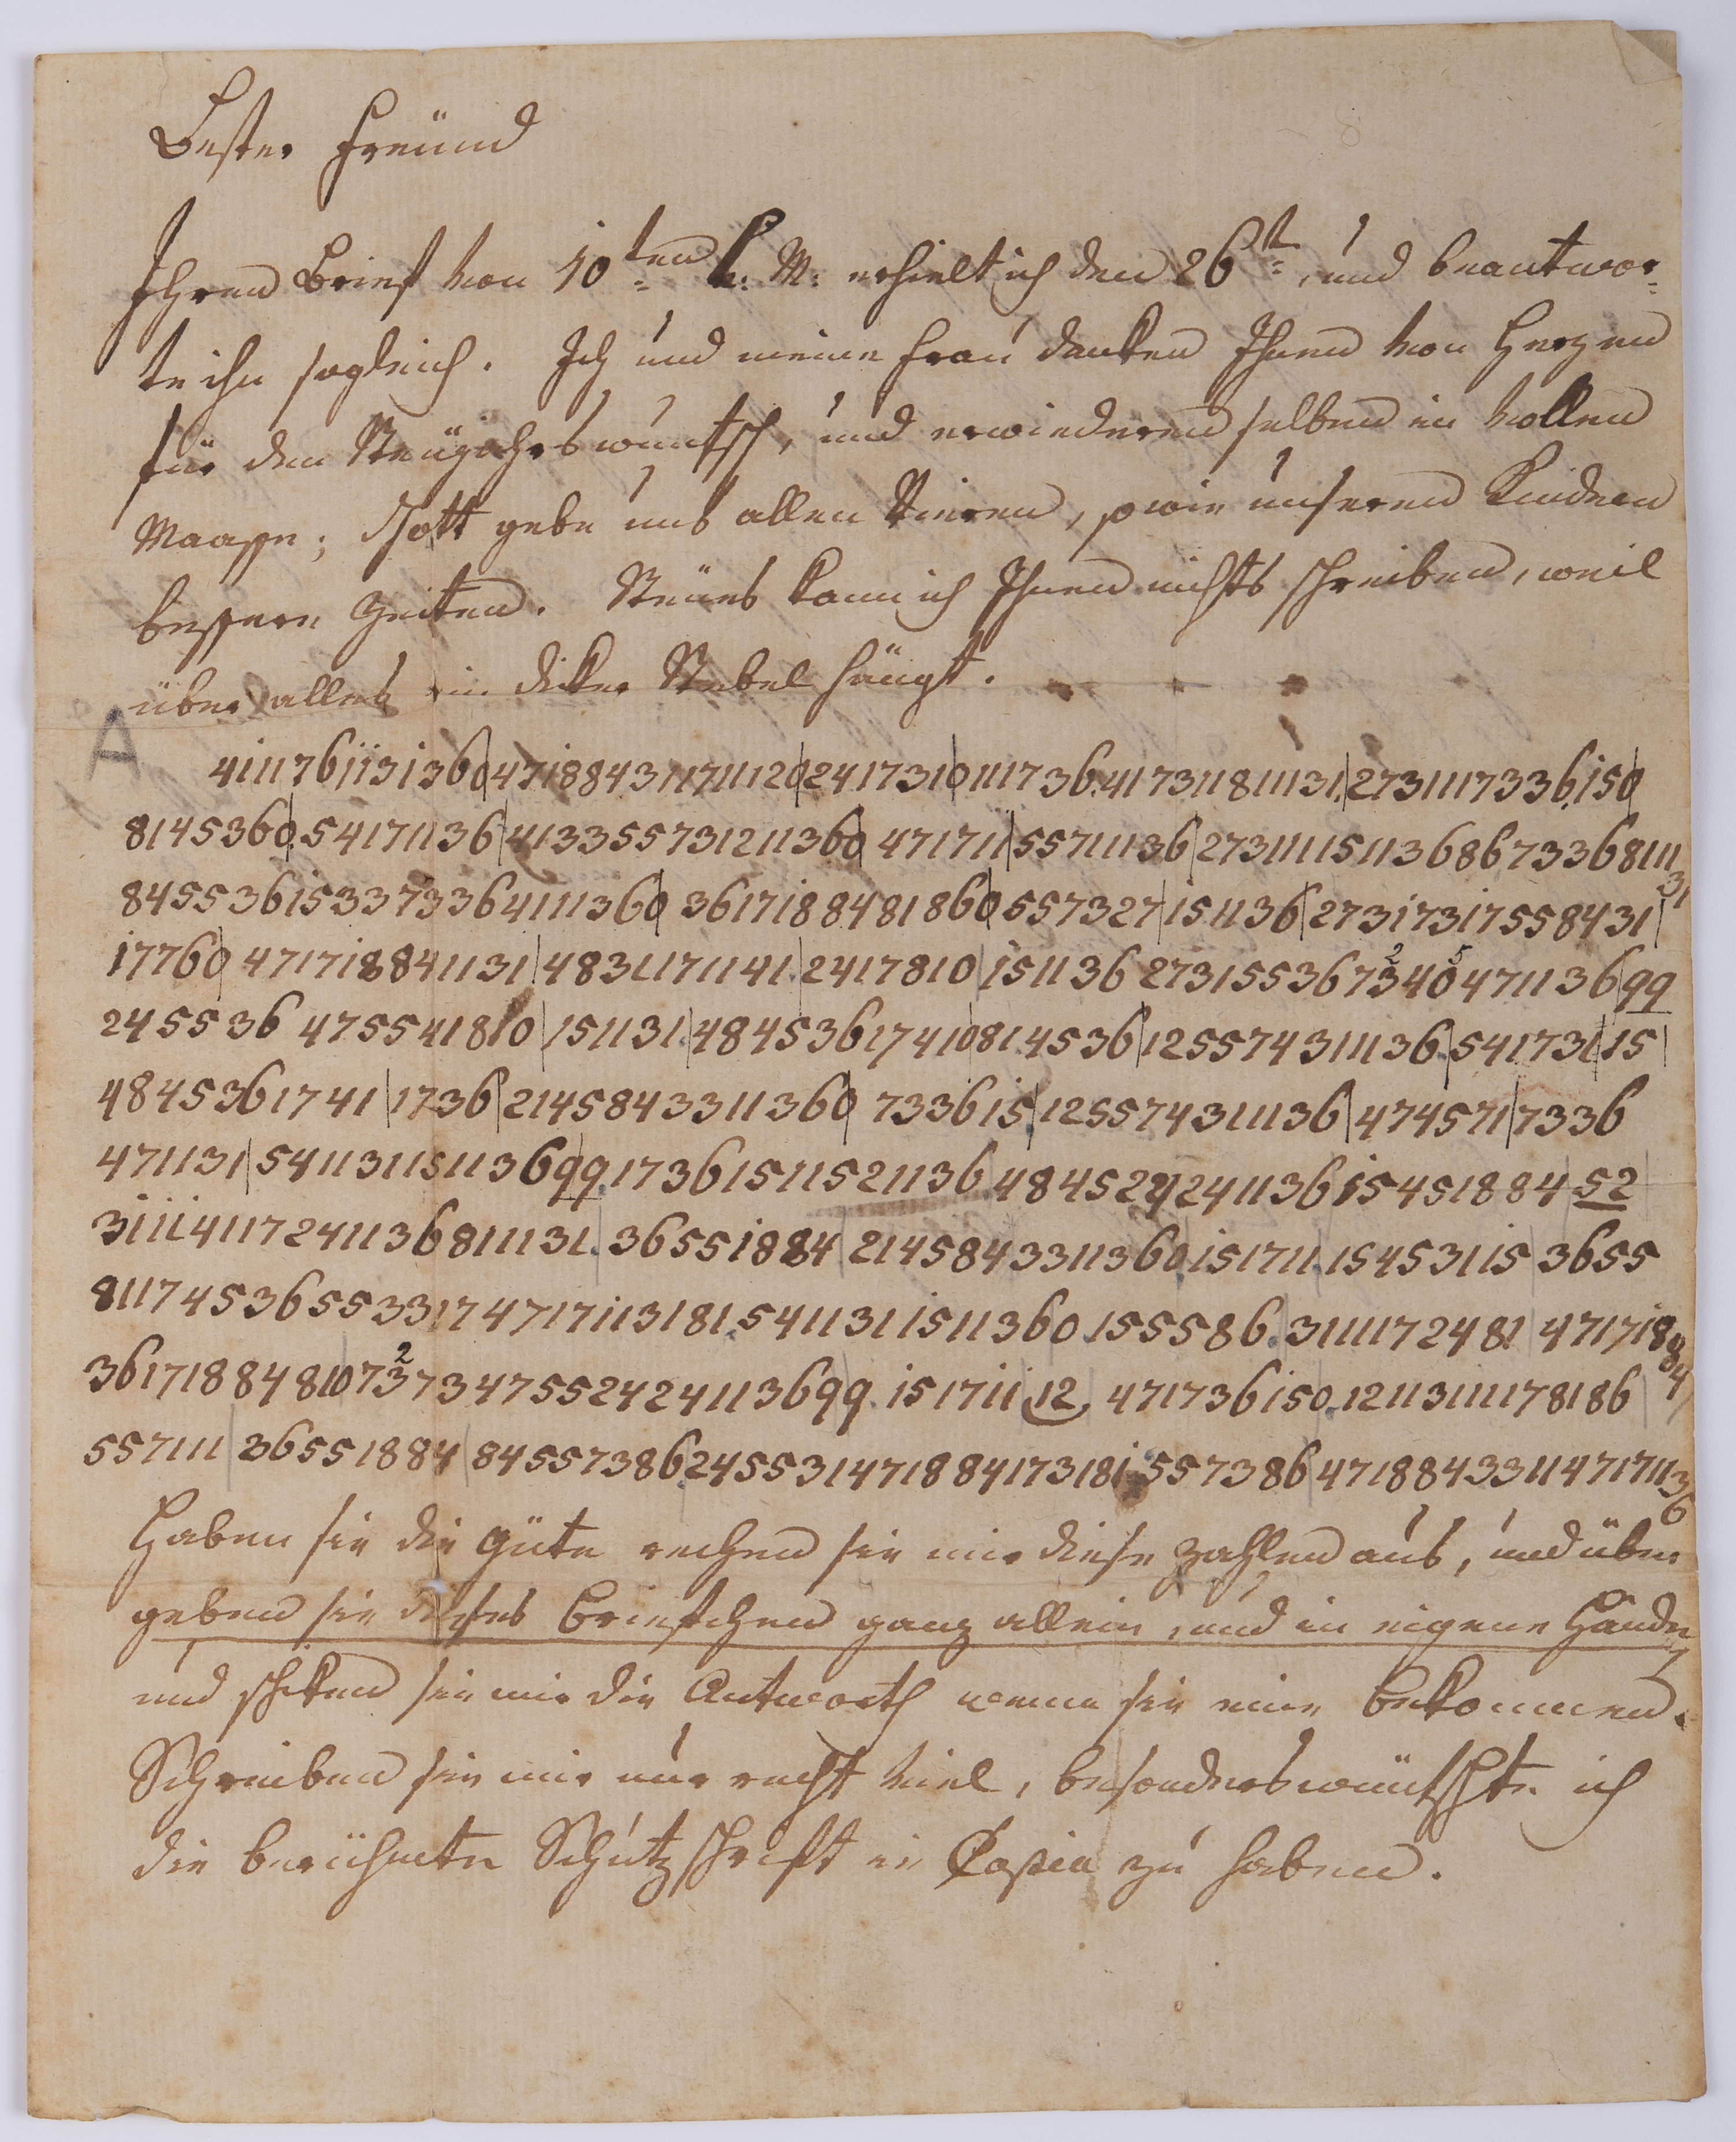 Bester Freünd
Ihren Brief von 10ten l: M: erhielt ich den 26t, und beantwor-
te ihn sogleich. Ich und meine Frau danken Ihnen von Herzen
für den Neüjahrswuntsch, und erwiederen selben in vollen
Maasse; Gott gebe uns allen Vieren, sowie unseren Kindern
bessere Zeiten. Neües kann ich Ihnen nichts schreiben, weil
über alles ein dicker Nebel hängt.
A
41117611313604718843117111202417310111736.4173118111312731117336150
8145360.541711364133557312113604717115571113627311115113686733681 11
31
845536153373364111360361718848186055732715113627317317558431
17760471718841131483117114124178101511362731553673240547113699
2
5
2455364755418101511314845361741081453612557431113654173115
484536174117362145843311360733615125574311136474571 7336
47113154113115113699.173615115211364845242411361545188452
311141172411368111313655188421458433113601517111545311536 55
8117453655331747171131815411311511360.155586.31111724814717188
84
3617188481073734755242411369915171112471736150.12113111178186
2
55711136551884845573862455314718841731815573864718843311471711 3
6
Haben sie die Güte rechen sie mir diese Zahlen aus, und über
geben sie dieses Briefchen ganz allein, und in eigene Hände,
und schiken sie mir die Antworth wenn sie eine bekommen.
Schreiben sie mir nur recht viel, besonders wüntschte ich
die berühmte Schutzschrift in Copia zu haben.